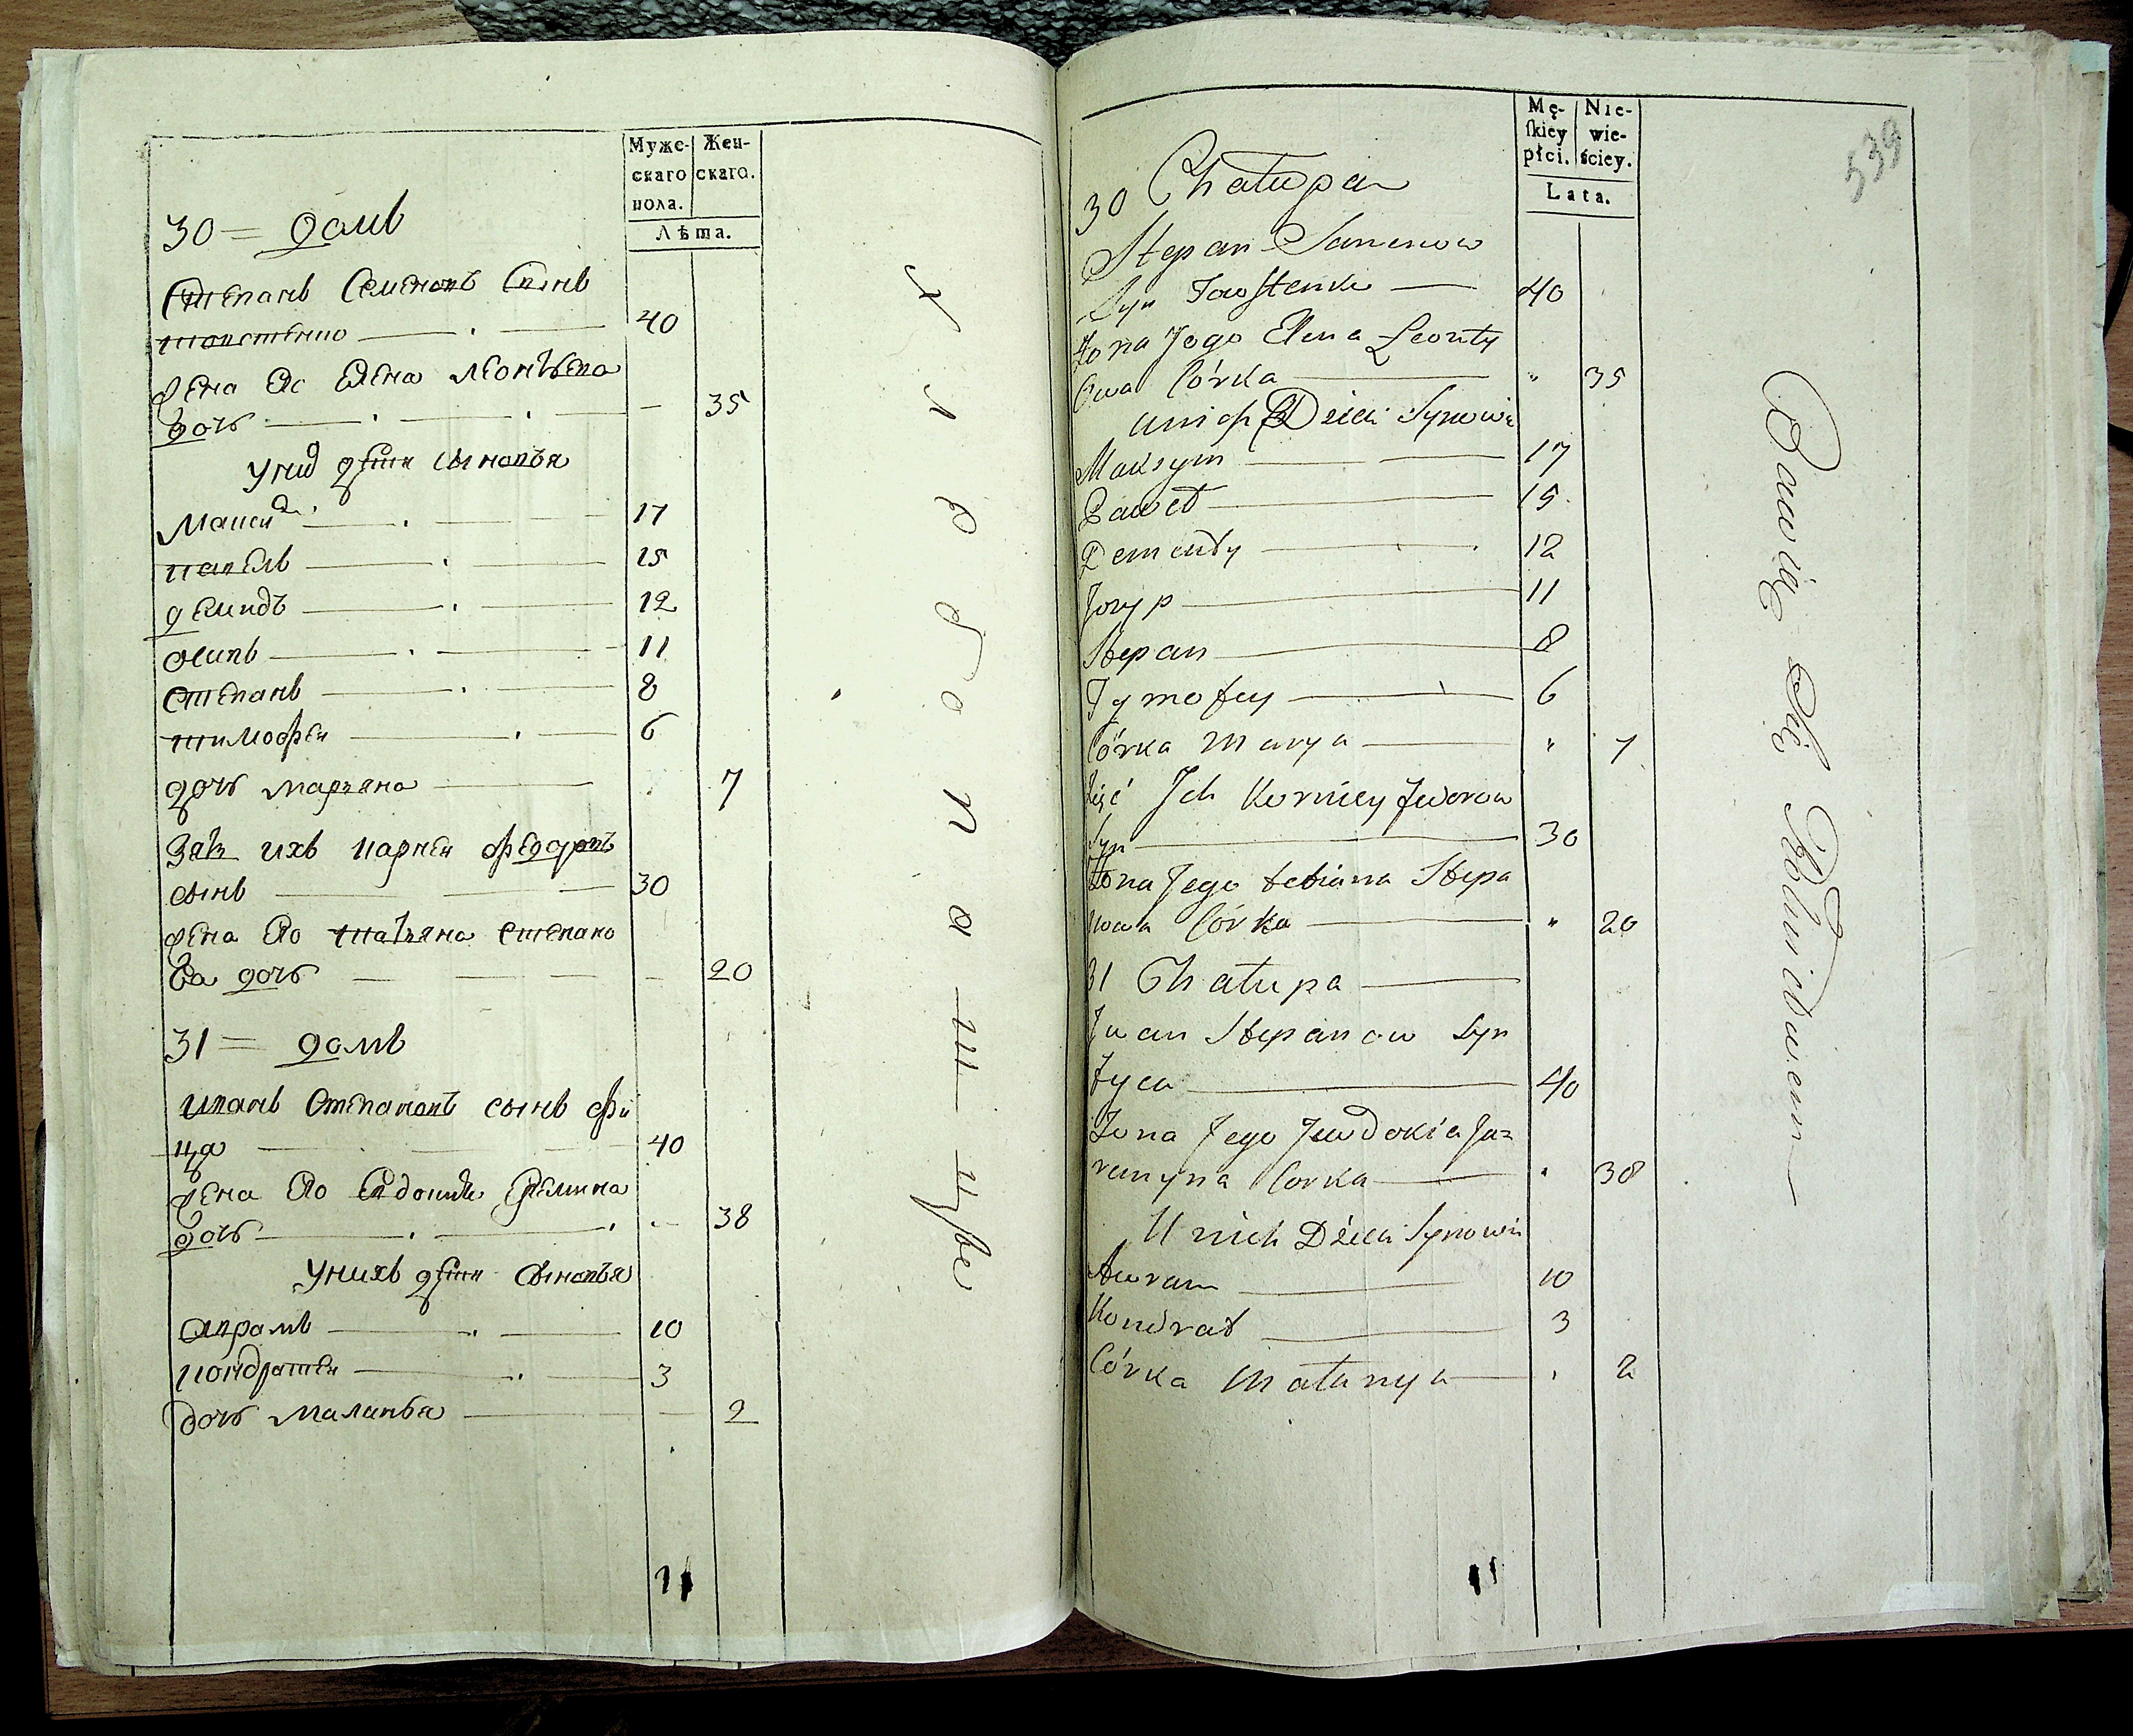 Муже- Жен-
скаго скаго.
пола.
Лѣта.
30 = домъ
Степанъ Семеновъ Сынъ
товстенко 40
жена его елена леонтьева
дочъ 35
унихъ дети сыновья
Максим 17
павелъ 15
демидъ 12
осипъ 11
степанъ 8
тимофей 6
дочъ марьяна 7
Зять ихъ карней федоровъ
сынъ 30
жена его татьяна степано
ва дочъ 20
31 = домъ
иванъ Степановъ сынъ фи
ца 40
жена его Евдокия Еремина
дочъ 38
унихъ дети сыновья
аврамъ 10
кондратей 3
дочъ маланья 2
11
хлебопашцы
Mę- Nie-
ſkiey wie-
płci. ściey.
Lata.
539
30 Chałupa
Stepan Samenow
Syn Towstenko 40
Żona Jego Elena Leonty
Owa Córka " 35
unich Dzieci Synowie
Maksym 17
Paweł 15
Dementy 12
Josyp 11
Stepan 8
Tymofey 6
Córka Marya " 7
Zięć Ich Korniey Fedorow
Syn 30
Żona Jego tetiana Stepa
nowa Córka " 20
31 Chałupa
Iwan Stepanow Syn
Fyca 40
Żona Jego Jewdokia Ja=
remyna Corka 38
U nich Dzieci Synowie
Awram 10
Kondrat 3
Córka Małanya 2
11
Bawią Się Rolnictwem